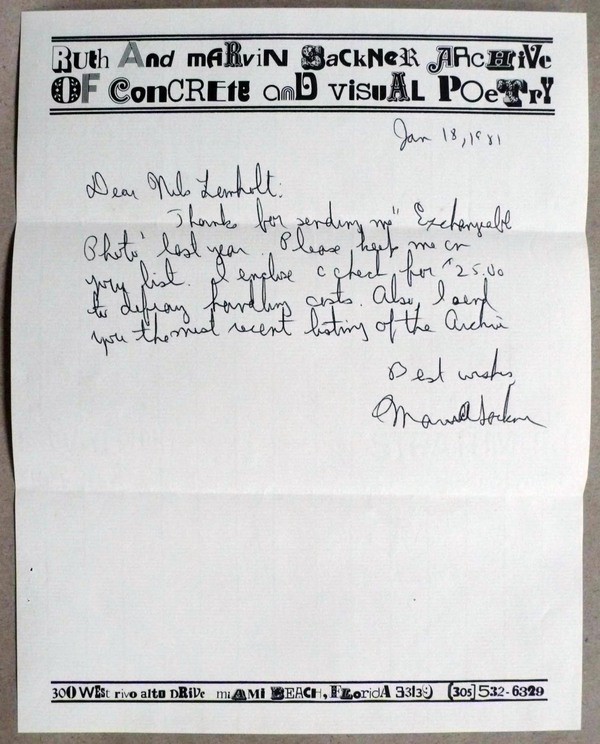 Ruth And maRviN SackNeR ARcHiVe
OF ConCREtE anD visuAL POeTrY
Jan 18, 1981
Dear Nils Lomholt:
Thanks for sending me "Exchangeable
Photo" last year. Please keep me on
your list. I enclose a check for $25.00
to defray handling costs. Also, I send
you the most recent listing of the Archive
Best wishes,
Marvin Sackner
300 WESt rivo alto DRiVe miAMi BEACH, FLoridA 33139 (305) 532-6329